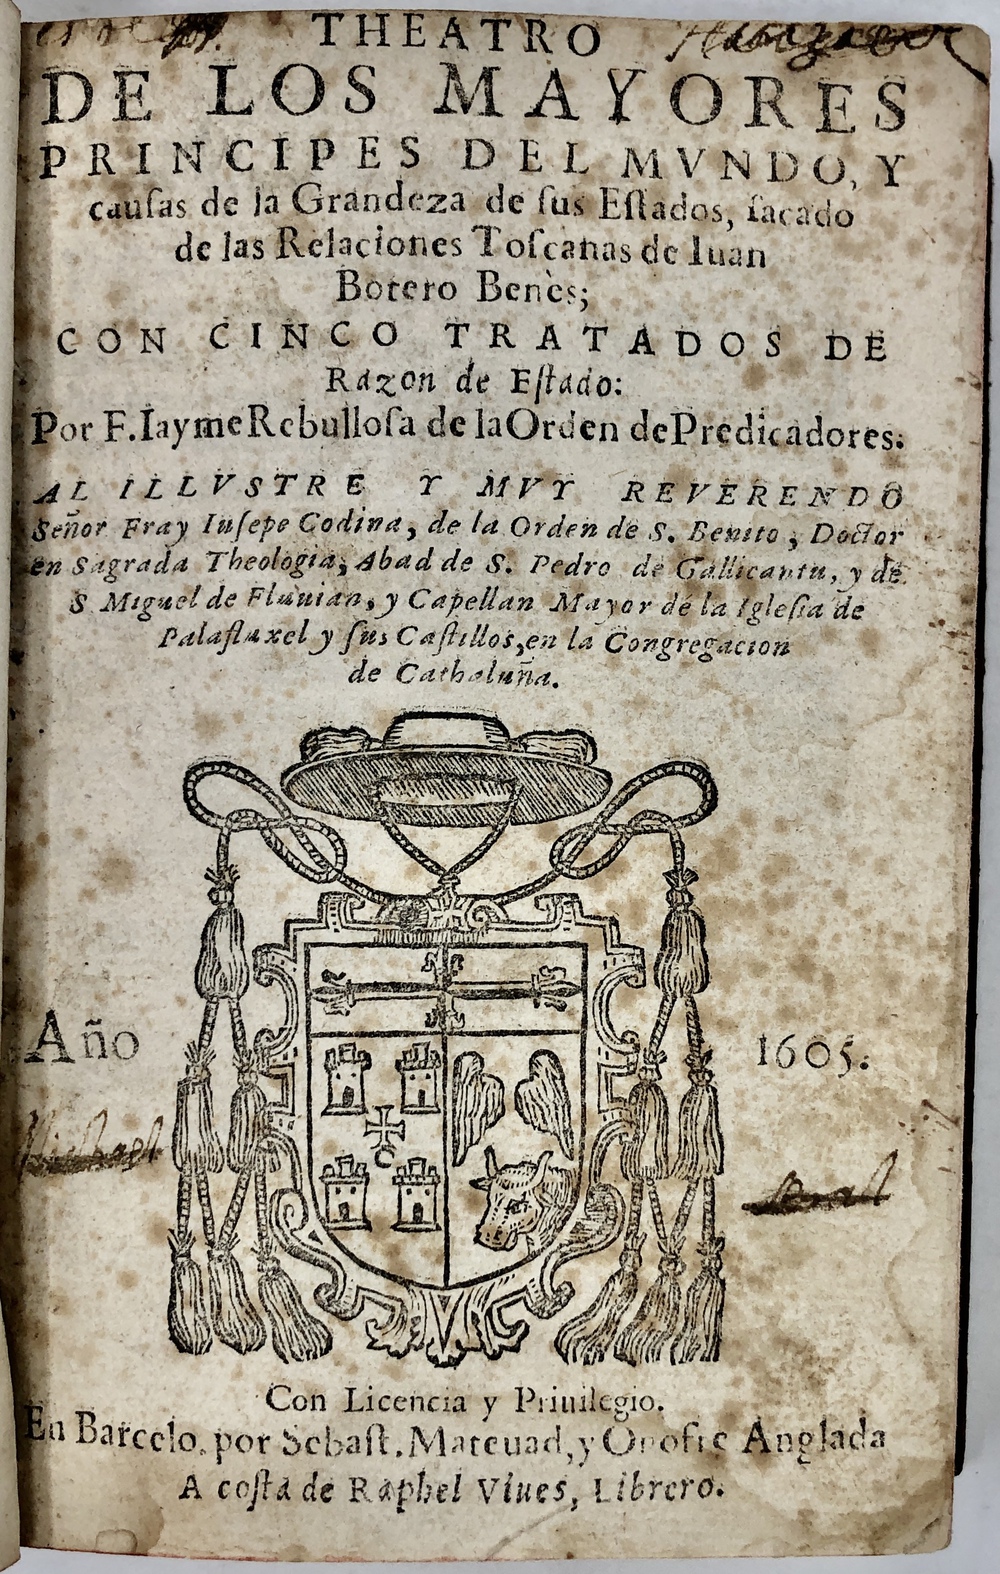 THEATRO
DE LOS MAYORES
PRINCIPES DEL MVNDO, Y
cauſas de la Grandeza de ſus Eſtados, ſacado
de las Relaciones Toſcanas de Iuan
Botero Benès;
CON CINCO TRATADOS DE
Razon de Eſtado:
Por F. Iayme Rebulloſa de la Orden de Predicadores.
AL ILLVSTRE Y MVY REVERENDO
Señor Fray Iuſepe Codina, de la Orden de S. Benito, Doctor
en Sagrada Theologia, Abad de S. Pedro de Gallicantu, y de
S Miguel de Fluuian, y Capellan Mayor de la Igleſia de
Palaflaxel y ſus Caſtillos, en la Congregacion
de Cathaluña.
Año 1605.
C
Con Licencia y Priuilegio.
En Barcelo. por Sebaſt. Mateuad, y Onofre Anglada
A coſta de Raphel Viues, Librero.